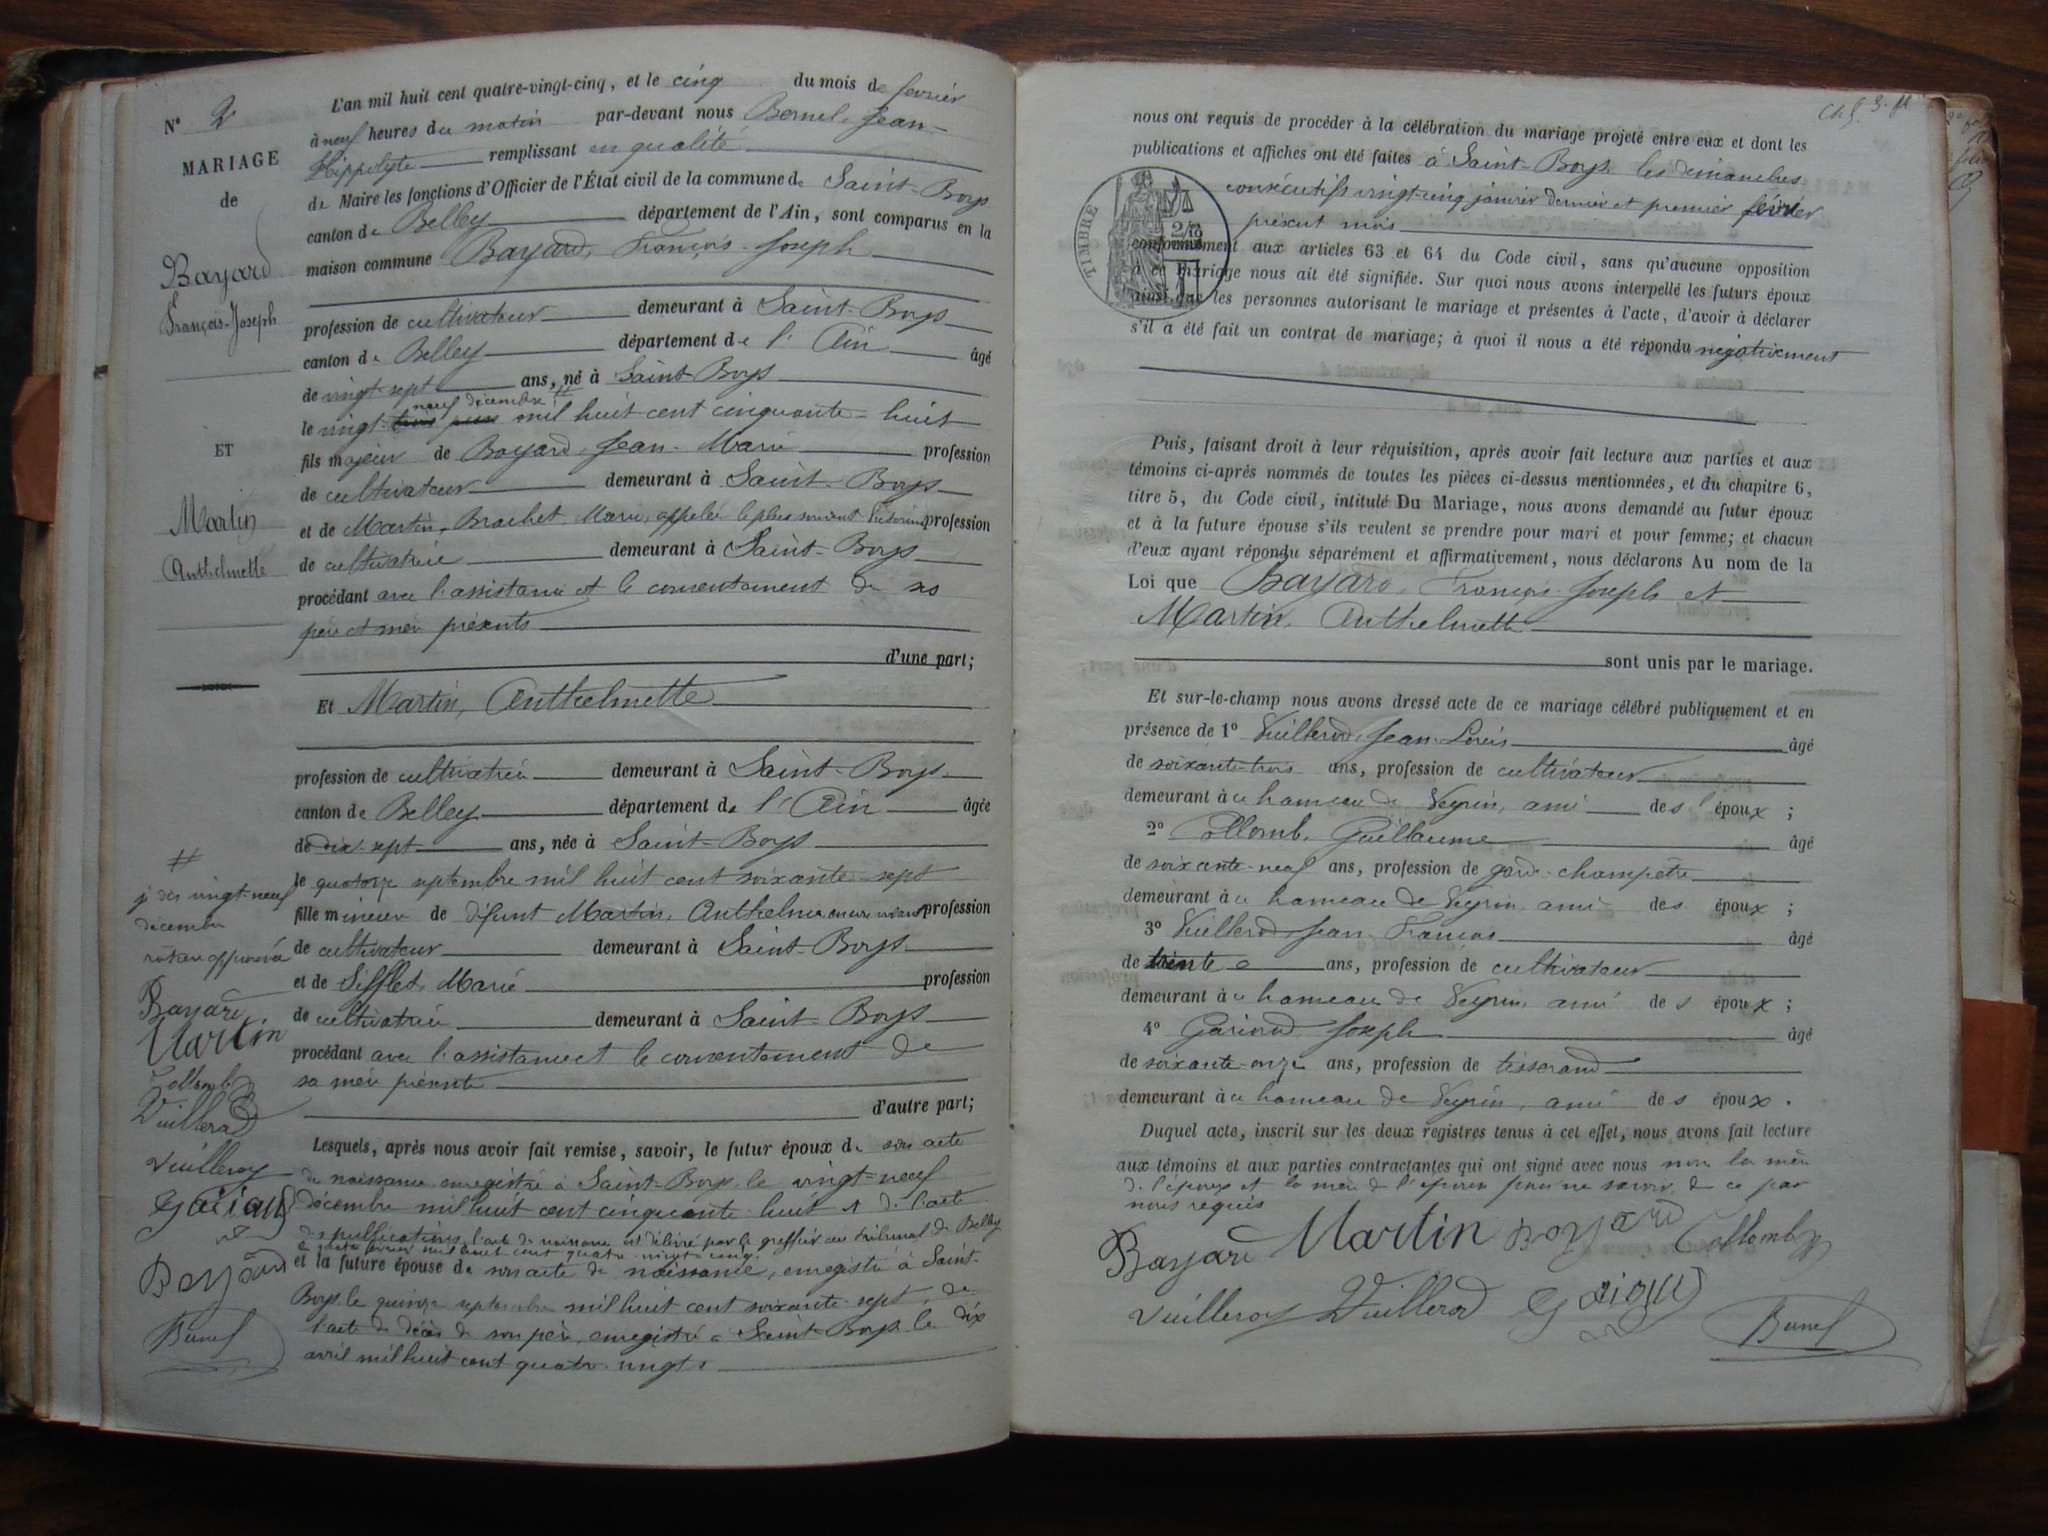 N° 2
MARIAGE
de
Bayard
François-Joseph
ET
Martin
Anthelmette
L'an mil huit cent quatre-vingt-cinq, et le cinq du mois de fevrier
à neuf heures du matin par-devant nous Bernel, Jean-
Hippolyte remplissant en qualité
de Maire les fonctions d'Officier de l'État civil de la commune de Saint-Boys
canton de Belley département de l'Ain, sont comparus en la
maison commune Bayard, François-Joseph
profession de cultivateur demeurant à Saint-Boys
canton de Belley département de l'Ain âgé
de vingt-sept ans, né à Saint-Boys
neuf décembre #
le vingt-trois mil huit cent cinquante-huit
fils majeur de Bayard, Jean-Marie profession
de cultivateur demeurant à Saint-Boys
et de Martin, Brachet, Marie, appelée le plus souvent profession
de cultivatrice demeurant à Saint-Boys
procédant avec l'assistance et le consentement de ses
père et mère présents
d'une part;
Et Martin, Anthelmette
profession de cultivatrice demeurant à Saint-Boys
canton de Belley département de l'Ain âgée
de dix-sept ans, née à Saint-Boys
le quatorze septembre mil huit cent soixante-sept
fille mineur de défunt Martin, Anthelme en son vivant profession
de cultivateur demeurant à Saint-Boys
et de Sifflet, Marie profession
de cultivatrice demeurant à Saint-Boys
procédant avec l'assistance et le consentement de
sa mère présente
d'autre part;
Lesquels, après nous avoir fait remise, savoir, le futur époux de son acte
de naissance enregistré à Saint-Boys le vingt-neuf
décembre mil huit cent cinquante-huit et de l'acte
de publications, l'acte de naissance est délivré par le greffier au tribunal de Belley
le mil huit cent quatre-vingt-cinq.
et la future épouse de son acte de naissance, enregistré à Saint-
Boys le quinze septembre mil huit cent soixante-sept, de
l'acte de décès de son père, enregistré à Saint-Boys le dix
avril mil huit cent quatre-vingts
#
vingt-neuf
décembre
approuvée
Bayard
Martin
Collomb
Vuillerod
Vuilleroy
Gariaud
Bayard
Bernel
nous ont requis de procéder à la célébration du mariage projeté entre eux et dont les
publications et affiches ont été faites à Saint-Boys les dimanches
consécutifs vingt-cinq janvier dernier et premier février
présent mois
TIMBRE
conformément aux articles 63 et 64 du Code civil, sans qu'aucune opposition
à ce mariage nous ait été signifiée. Sur quoi nous avons interpellé les futurs époux
ainsi que les personnes autorisant le mariage et présentes à l'acte, d'avoir à déclarer
s'il a été fait un contrat de mariage; à quoi il nous a été répondu négativement
Puis, faisant droit à leur réquisition, après avoir fait lecture aux parties et aux
témoins ci-après nommés de toutes les pièces ci-dessus mentionnées, et du chapitre 6,
titre 5, du Code civil, intitulé Du Mariage, nous avons demandé au futur époux
et à la future épouse s'ils veulent se prendre pour mari et pour femme; et chacun
d'eux ayant répondu séparément et affirmativement, nous déclarons Au nom de la
Loi que Bayard, François-Joseph et
Martin, Anthelmette
sont unis par le mariage.
Et sur-le-champ nous avons dressé acte de ce mariage célébré publiquement et en
présence de 1° Vuillerod, Jean-Louis âgé
de soixante-trois ans, profession de cultivateur
demeurant à u hameau de Veyrin, ami des époux;
2° Collomb, Guillaume âgé
de soixante-neuf ans, profession de garde-champêtre
demeurant à u hameau de Veyrin ami des époux;
3° Vuillerod Jean François âgé
de trente ans, profession de cultivateur
demeurant à u hameau de Veyrin, ami des époux;
4° Gariaud Joseph âgé
de soixante-onze ans, profession de tisserand
demeurant à u hameau de Veyrin, ami des époux.
Duquel acte, inscrit sur les deux registres tenus à cet effet, nous avons fait lecture
aux témoins et aux parties contractantes qui ont signé avec nous non la mère
de l'époux et la mère de l'épouse pour ne savoir de ce par
nous requis
Bayard Martin Bayard Collomb
Vuilleroy Vuillerod Gariaud Bernel